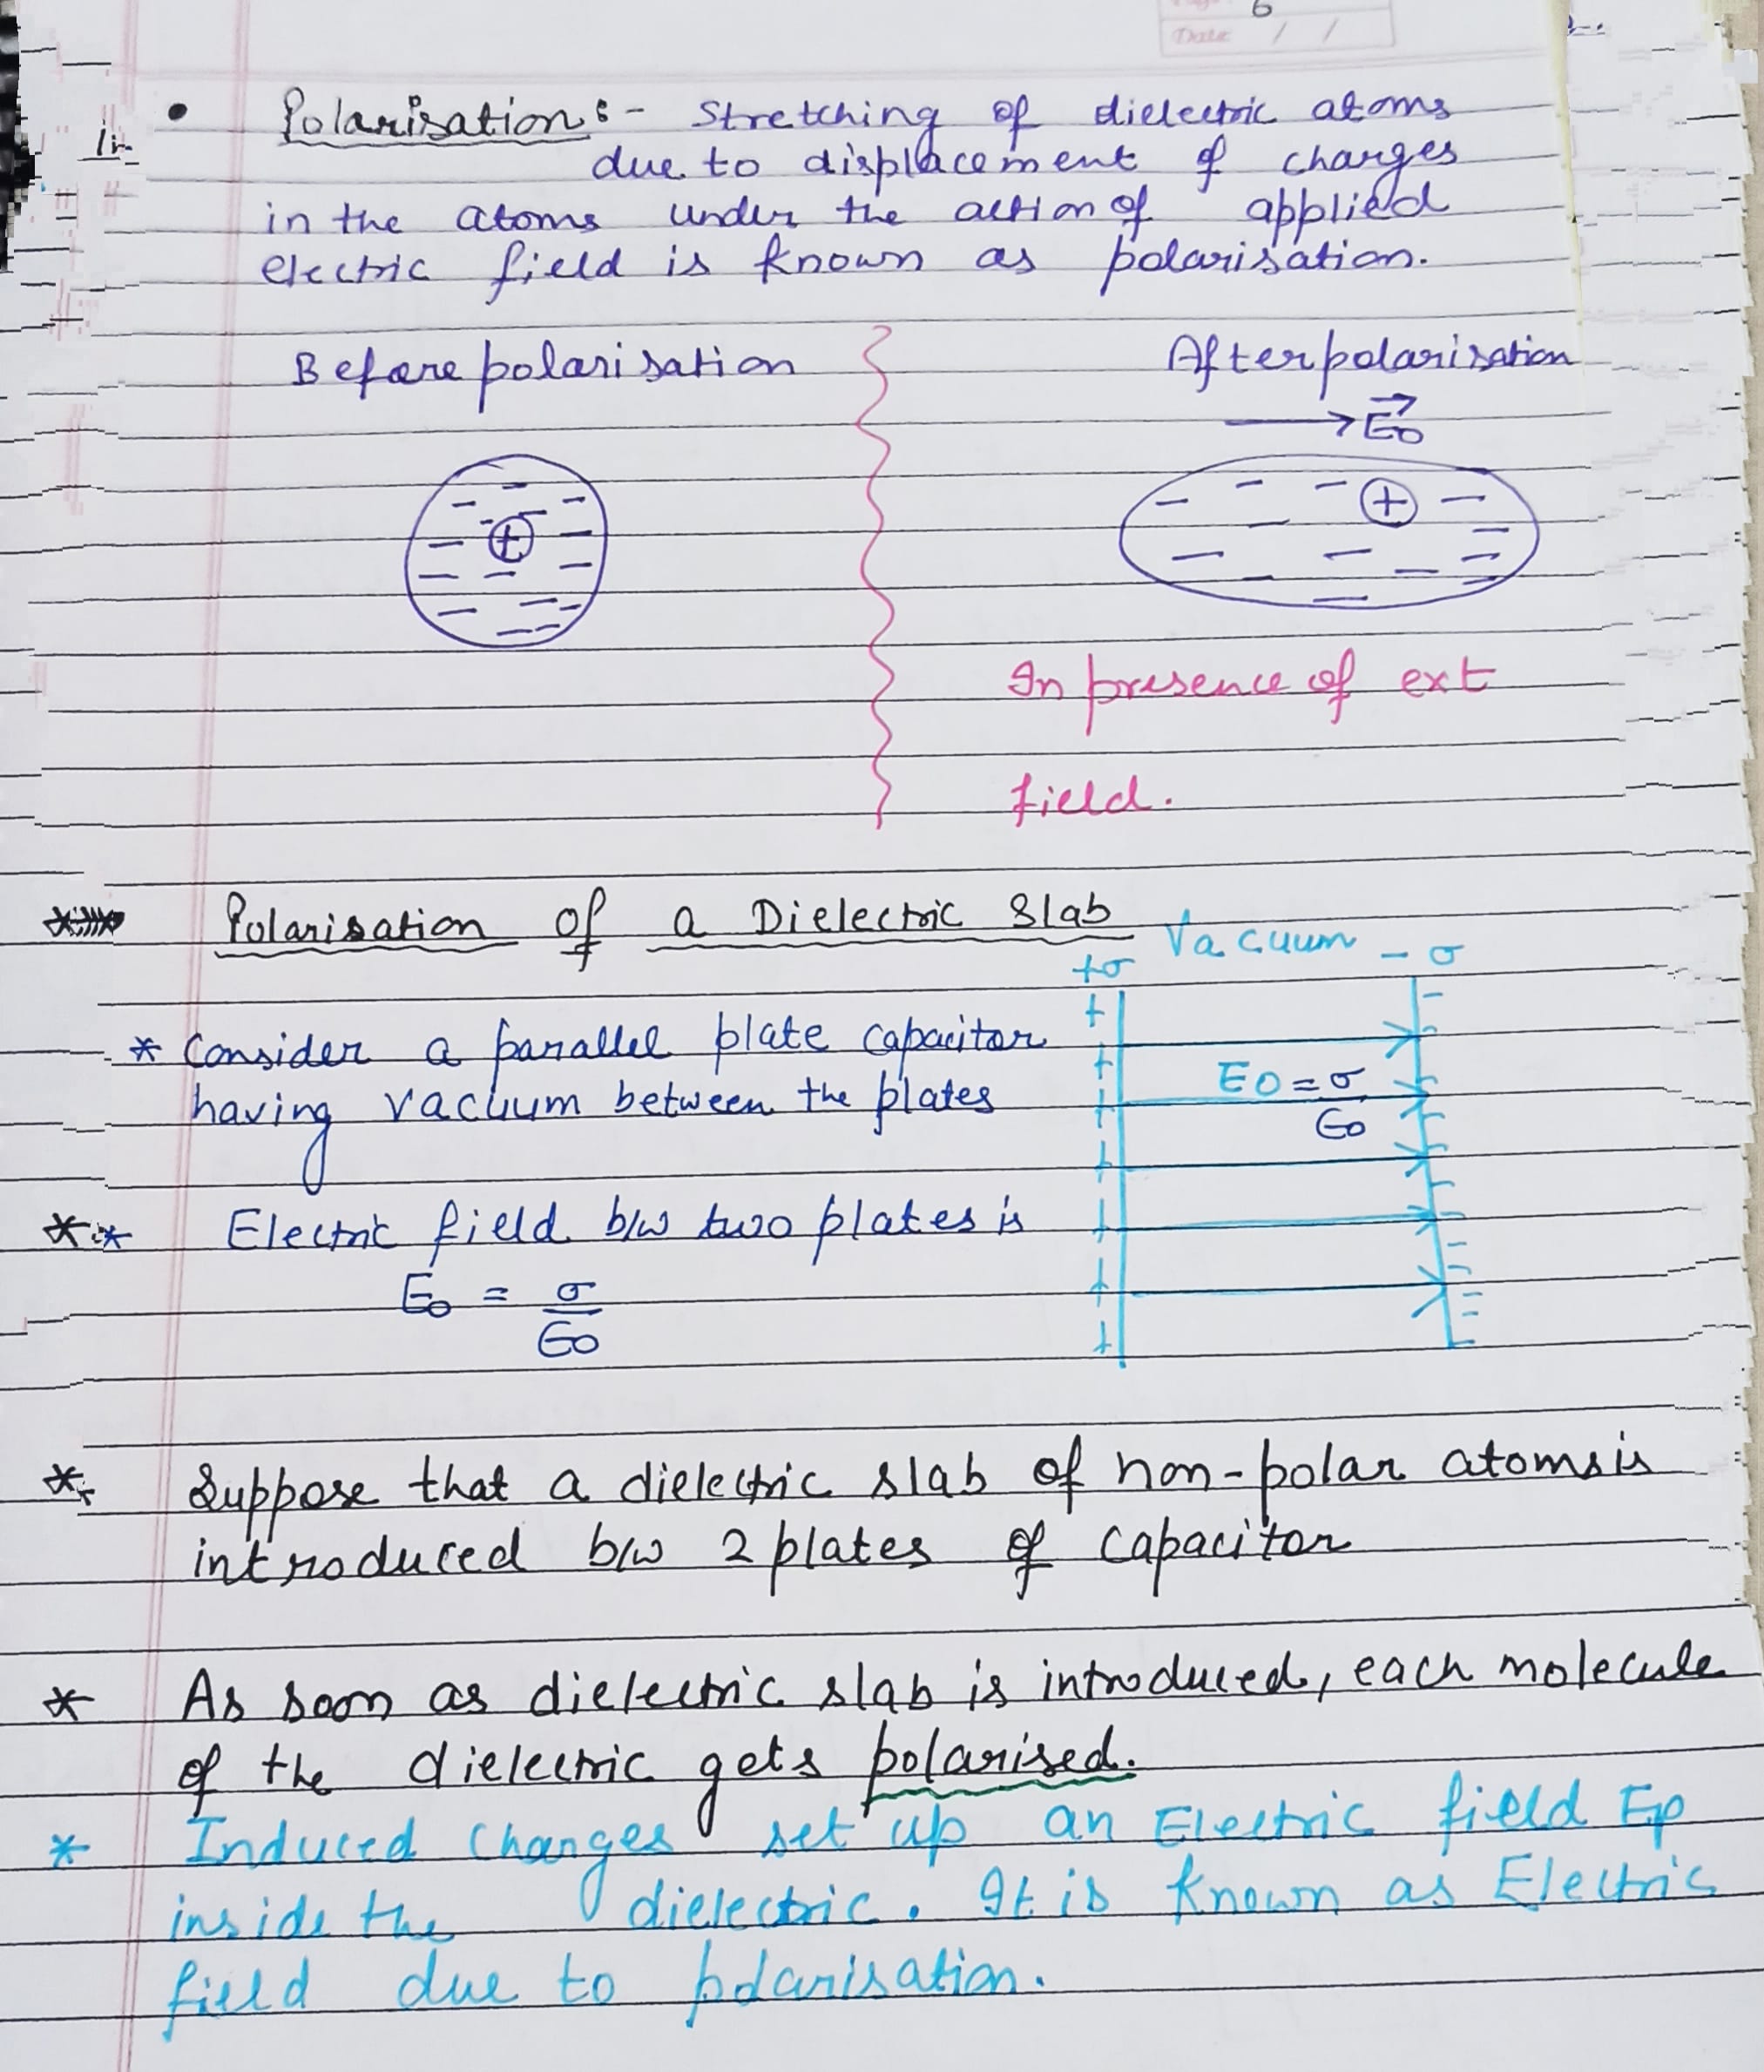 6
Date / /
• Polarisation :- Stretching of dielectric atoms
due to displacement of charges
in the atoms under the action of applied
electric field is known as polarisation.
Before polarisation
After polarisation
→ E⃗0
+
+
In presence of ext
field.
Polarisation of a Dielectric Slab
Vacuum
+σ
- σ
* Consider a parallel plate capacitor
having vacuum between the plates
E0 = σ/ϵ0
** Electric field b/w two plates is
E0 = σ/ϵ0
* Suppose that a dielectric slab of non-polar atoms is
introduced b/w 2 plates of capacitor
* As soon as dielectric slab is introduced, each molecule
of the dielectric gets polarised.
* Induced charges set up an Electric field Ep
inside the dielectric. It is known as Electric
field due to polarisation.